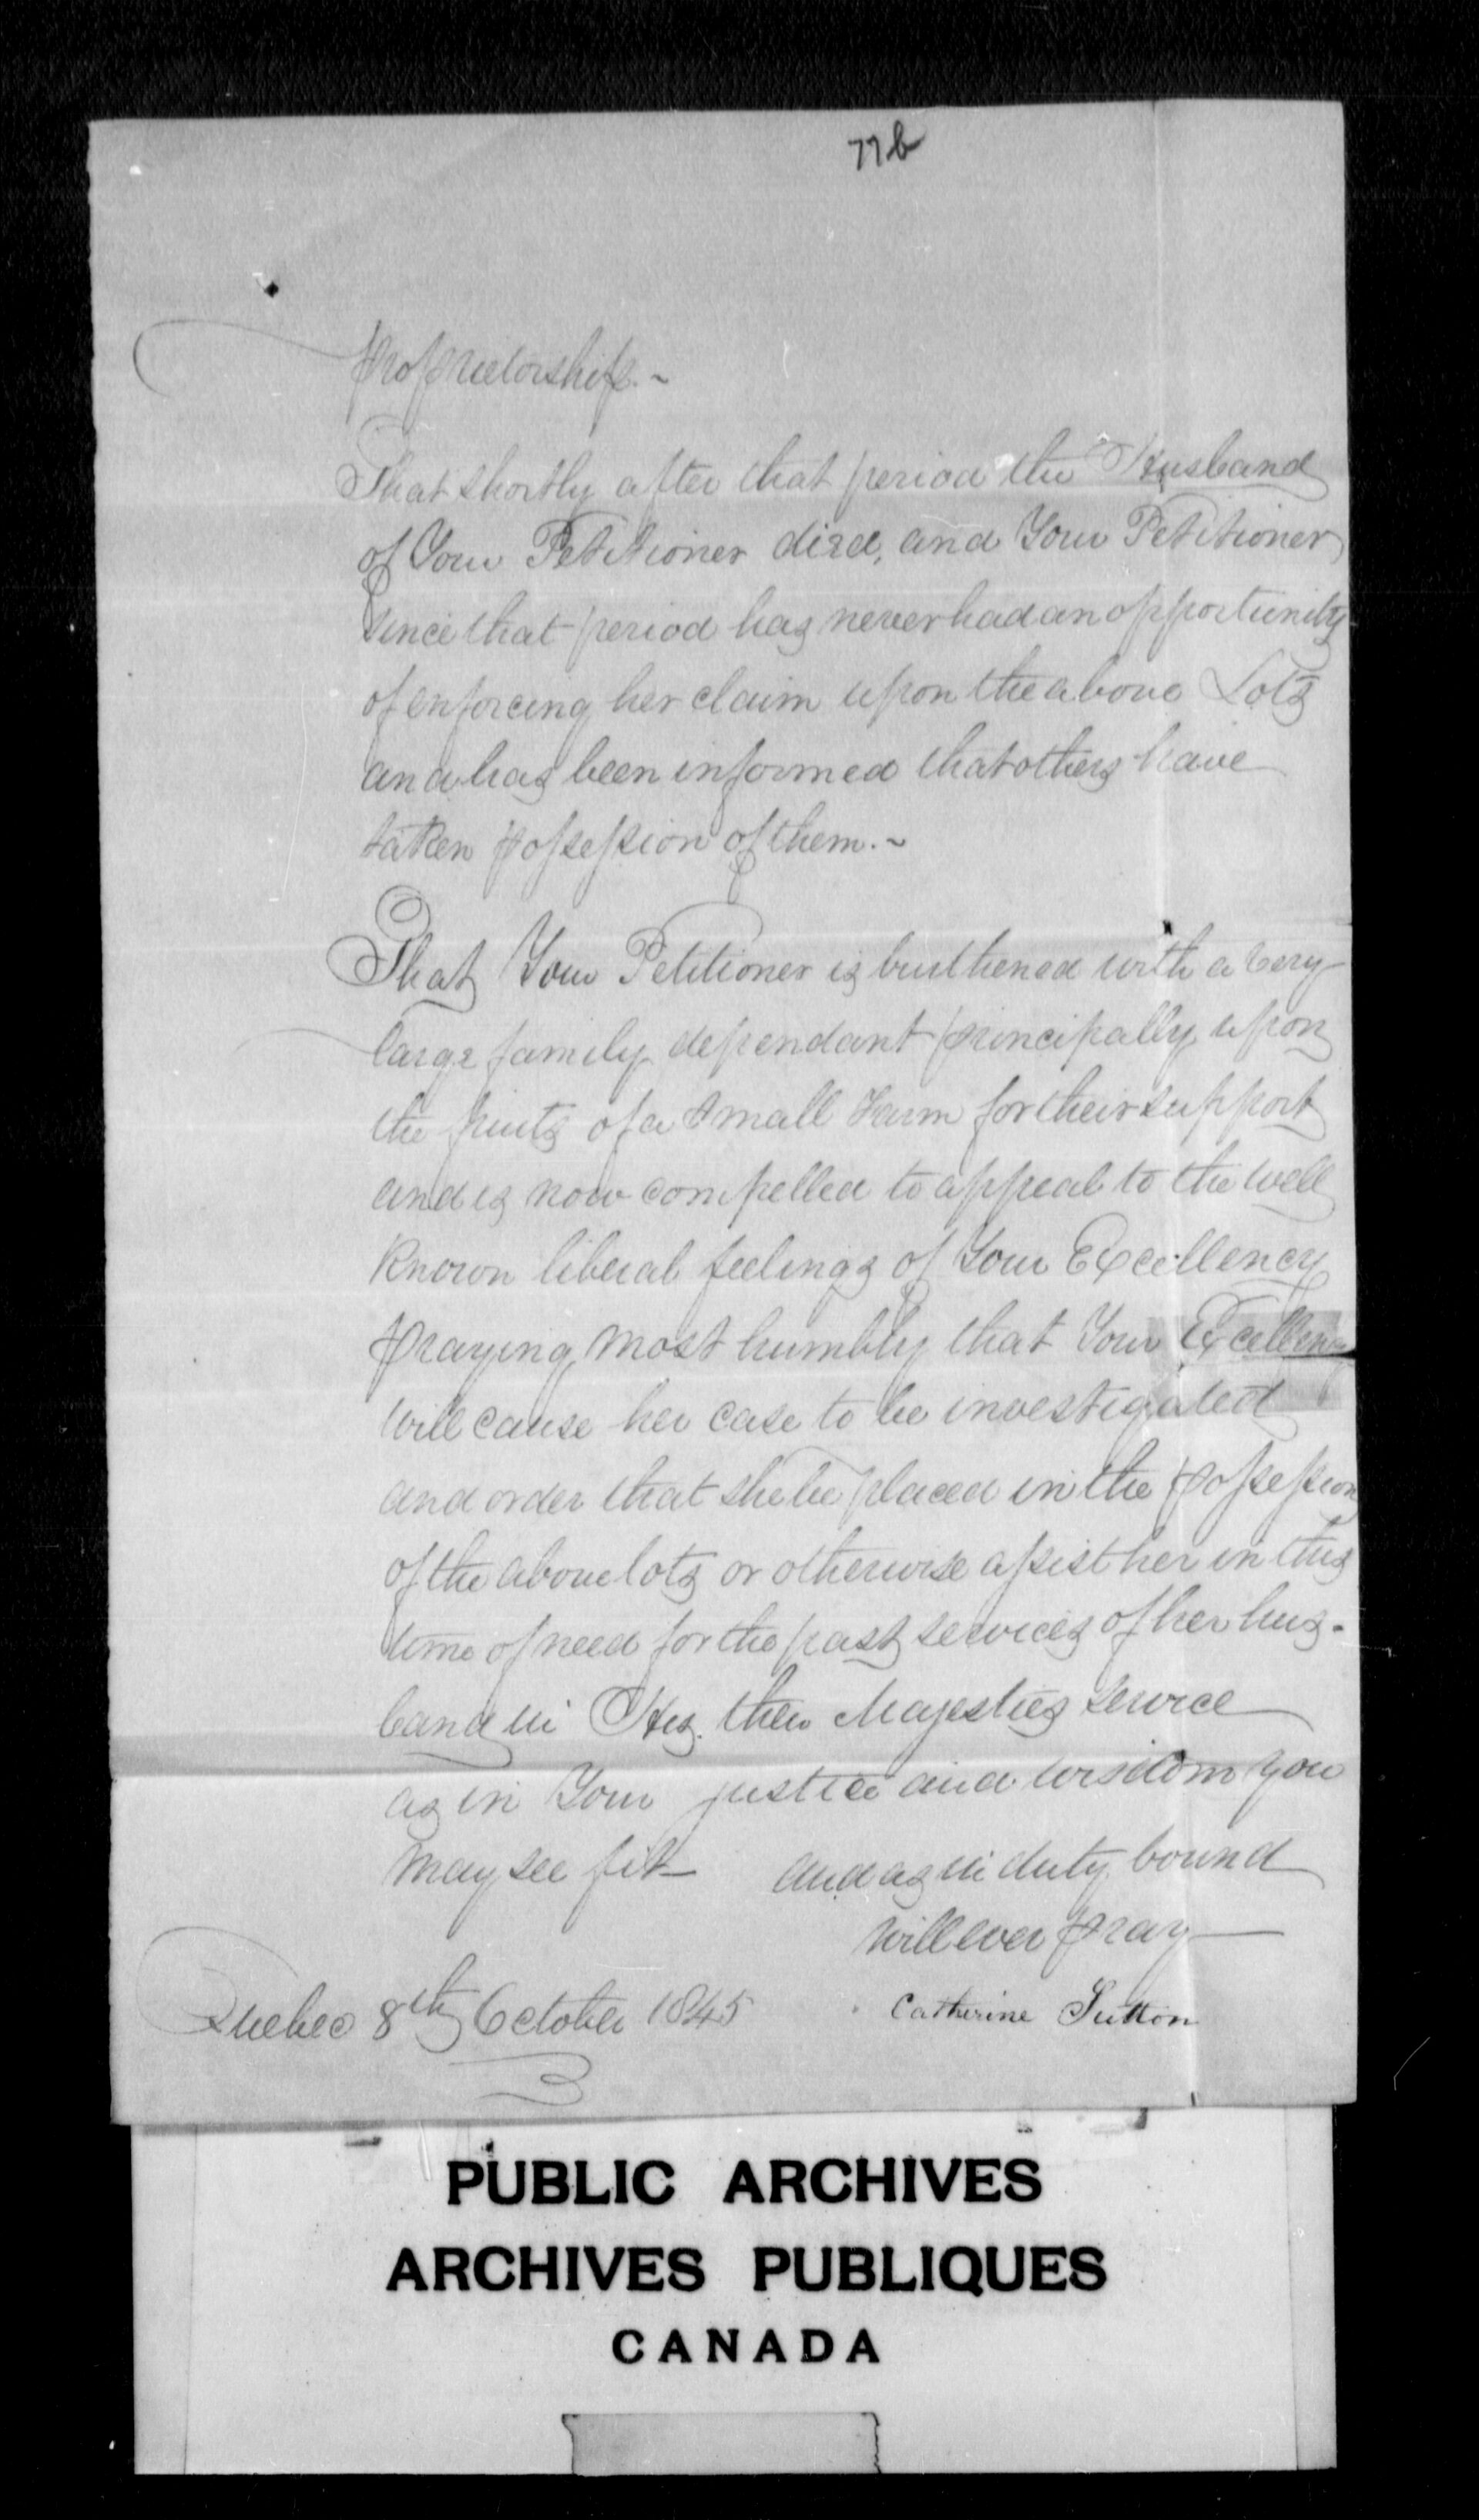 77b
proprietorship.~
That shortly after that period the Husband
of Your Petitioner died, and Your Petitioner
since that period has never had an opportunity
of enforcing her claim upon the above Lots
and has been informed that others have
taken possession of them.~
That Your Petitioner is burthened with a very
large family dependant principally upon
the fruits of a small Farm for their support
and is now compelled to appeal to the well
known liberal feelings of Your Excellency
praying most humbly that Your Excellency
will cause her case to be investigated
and order that she be placed in the possession
of the above lots or otherwise assist her in this
time of need for the past services of her hus-
band in His then Majesties service
as in Your justice and wisdom you
may see fit and as in duty bound
will ever pray
Quebec 8th October 1845 Catherine Sutton
PUBLIC ARCHIVES
ARCHIVES PUBLIQUES
CANADA